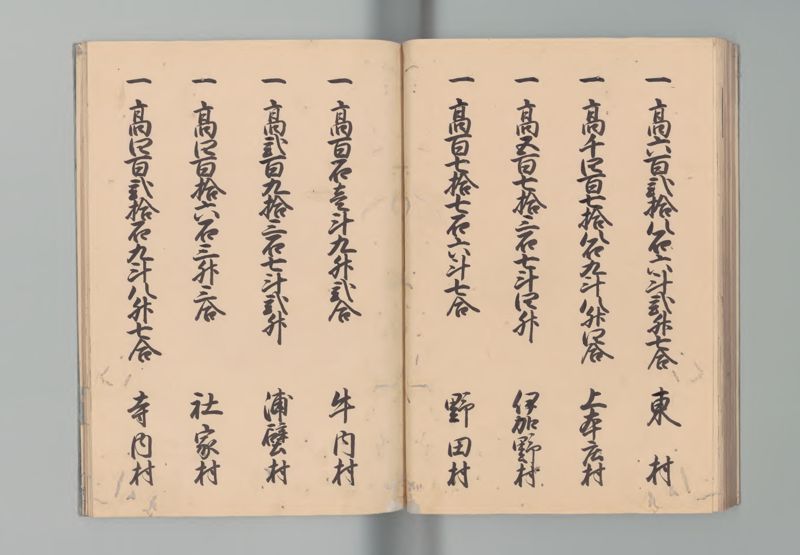 一 高六百弐拾八石六斗弐升七合 東村
一 高千四百七拾八石九斗八升四合 上本庄村
一 高五百七拾三石七斗四升 伊加野村
一 高百七拾七石六斗七合 野田村
一 高百石壱斗九升弐合 牛内村
一 高弐百九拾三石七斗弐升 浦壁村
一 高四百拾六石三升三合 社家村
一 高四百弐拾石九斗八升七合 寺内村